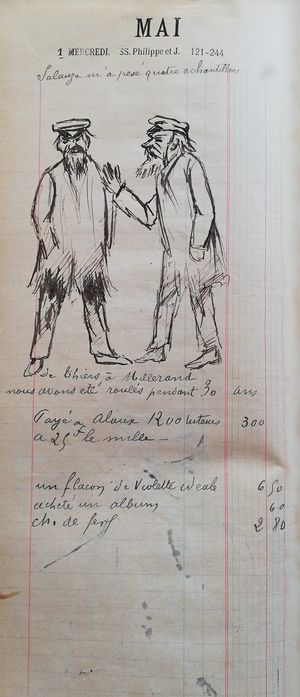 MAI
1 MERCREDI. SS. Philippe et J. 121-244
m'a pesé quatre échantillons
de Thiers à Millerand
nous avons été roulés pendant 30 ans
Payé à Alaux 1200 tuteurs 300
a 25f le mille —
un flacon de Violette ideale 6 50
acheté un album 60
ch. de fer 2 80